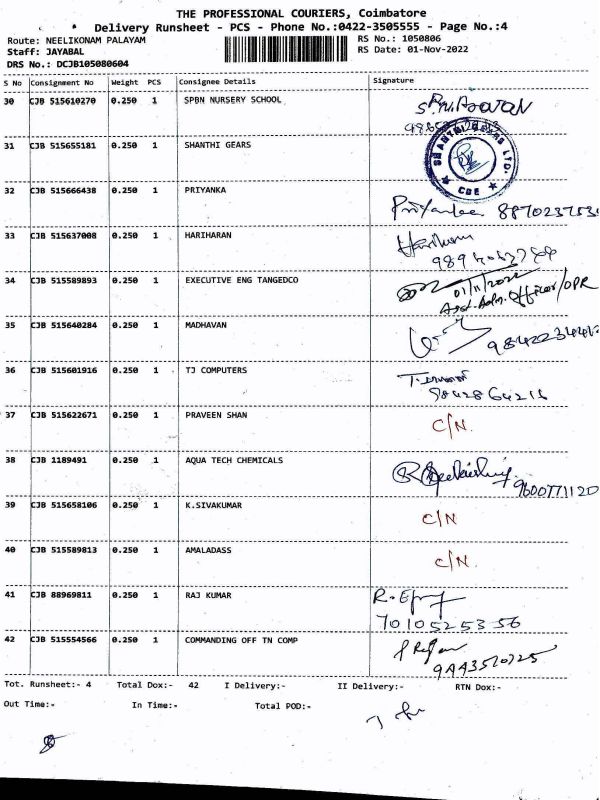 THE PROFESSIONAL COURIERS, Coimbatore
Delivery Runsheet - PCS - Phone No.:0422-3505555 - Page No.:4
Route: NEELIKONAM PALAYAM RS No.: 1050806
Staff: JAYABAL RS Date: 01-Nov-2022
DRS No.: DCJB105080604
S No Consignment No Weight PCS Consignee Details Signature
30 CJB 515610270 0.250 1 SPBN NURSERY SCHOOL
31 CJB 515655181 0.250 1 SHANTHI GEARS SHANTHI GEARS LTD. CBE
32 CJB 515666438 0.250 1 PRIYANKA Priyanka
33 CJB 515637008 0.250 1 HARIHARAN Hariharan
34 CJB 515589893 0.250 1 EXECUTIVE ENG TANGEDCO 01/11/2022
Asst. Adm. Officer/OPR
35 CJB 515640284 0.250 1 MADHAVAN
36 CJB 515601916 0.250 1 TJ COMPUTERS
9842864216
37 CJB 515622671 0.250 1 PRAVEEN SHAN C/N.
38 CJB 1189491 0.250 1 AQUA TECH CHEMICALS
9600771120
39 CJB 515658106 0.250 1 K.SIVAKUMAR C/N
40 CJB 515589813 0.250 1 AMALADASS C/N.
41 CJB 88969811 0.250 1 RAJ KUMAR
7010525356
42 CJB 515554566 0.250 1 COMMANDING OFF TN COMP
Tot. Runsheet:- 4 Total Dox:- 42 I Delivery:- II Delivery:- RTN Dox:-
Out Time:- In Time:- Total POD:-